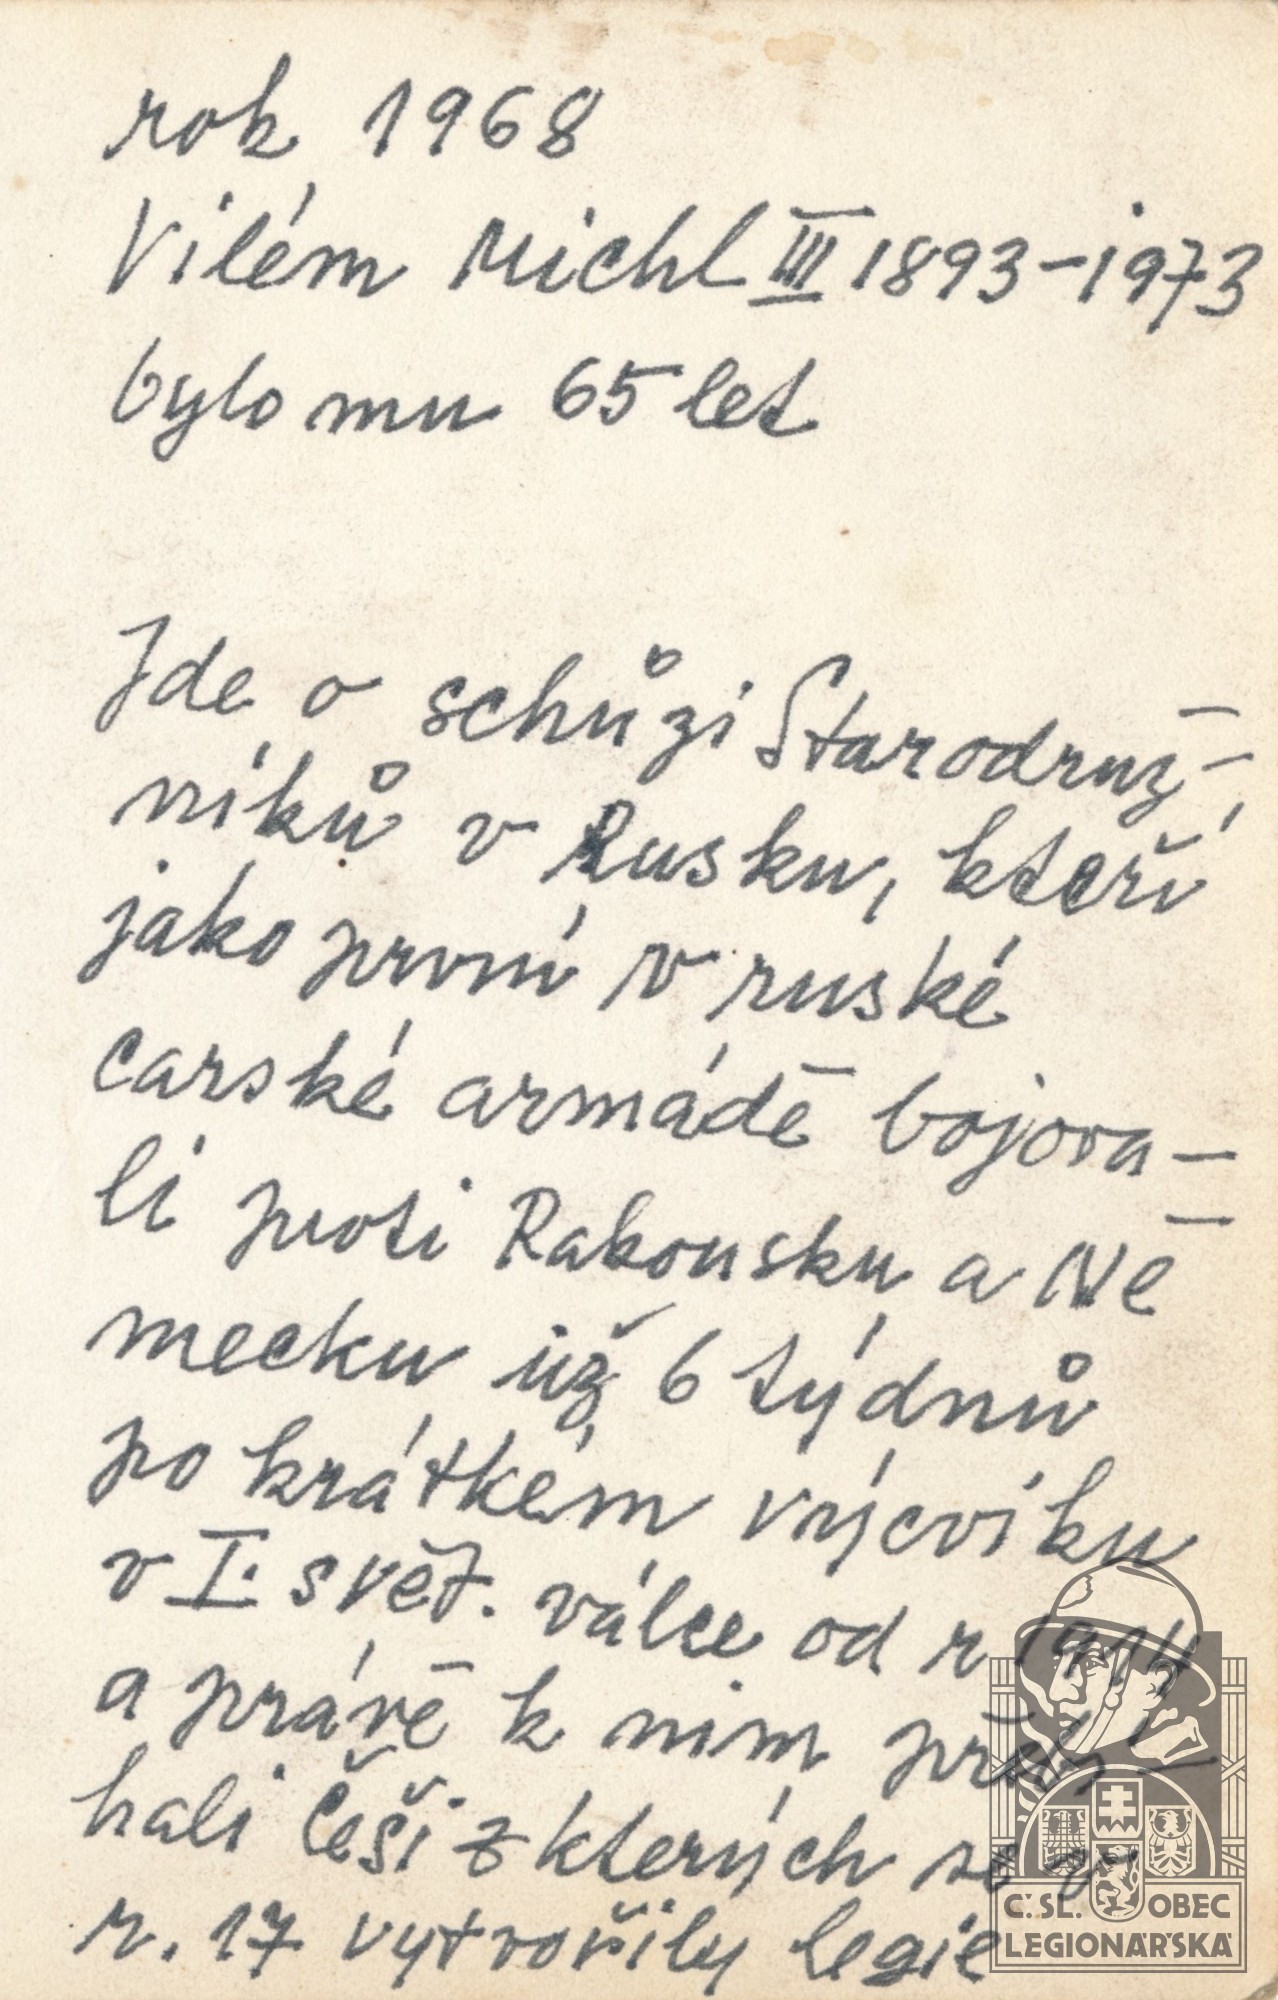 rok 1968
Vilém Michl III 1893-1973
bylo mu 65 let
Jde o schůzi Starodruž-
níků v Rusku, kteří
jako první v ruské
carské armádě bojova-
li proti Rakousku a Ně
mecku už 6 týdnů
po krátkém výcviku
v I. svět. válce od r 1914
a právě k nim přebí-
hali Češi z kterých se v
r. 17 vytvořily legie
Č. SL. OBEC
LEGIONÁŘSKÁ